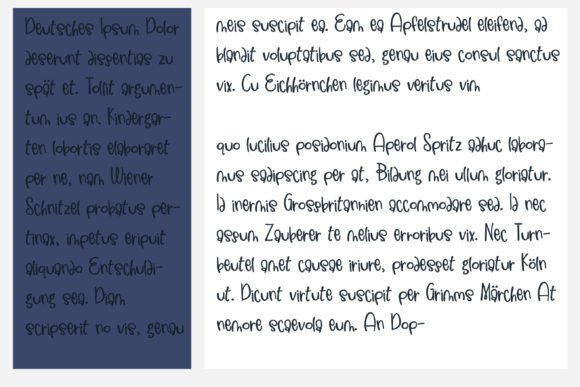 Deutsches Ipsum Dolor
deserunt dissentias zu
spät et. Tollit argumen-
tum ius an. Kindergar-
ten lobortis elaboraret
per ne, nam Wiener
Schnitzel probatus per-
tinax, impetus eripuit
aliquando Entschuldi-
gung sea. Diam
scripserit no vis, genau
meis suscipit ea. Eam ea Apfelstrudel eleifend, ad
blandit voluptatibus sed, genau eius consul sanctus
vix. Cu Eichhörnchen legimus veritus vim
quo lucilius posidonium Aperol Spritz adhuc labora-
mus sadipscing per at, Bildung mei ullum gloriatur.
Id inermis Grossbritannien accommodare sed. Id nec
assum Zauberer te melius erroribus vix. Nec Turn-
beutel amet causae iriure, prodesset gloriatur Köln
ut. Dicunt virtute suscipit per Grimms Märchen At
nemore scaevola eum. An Dop-